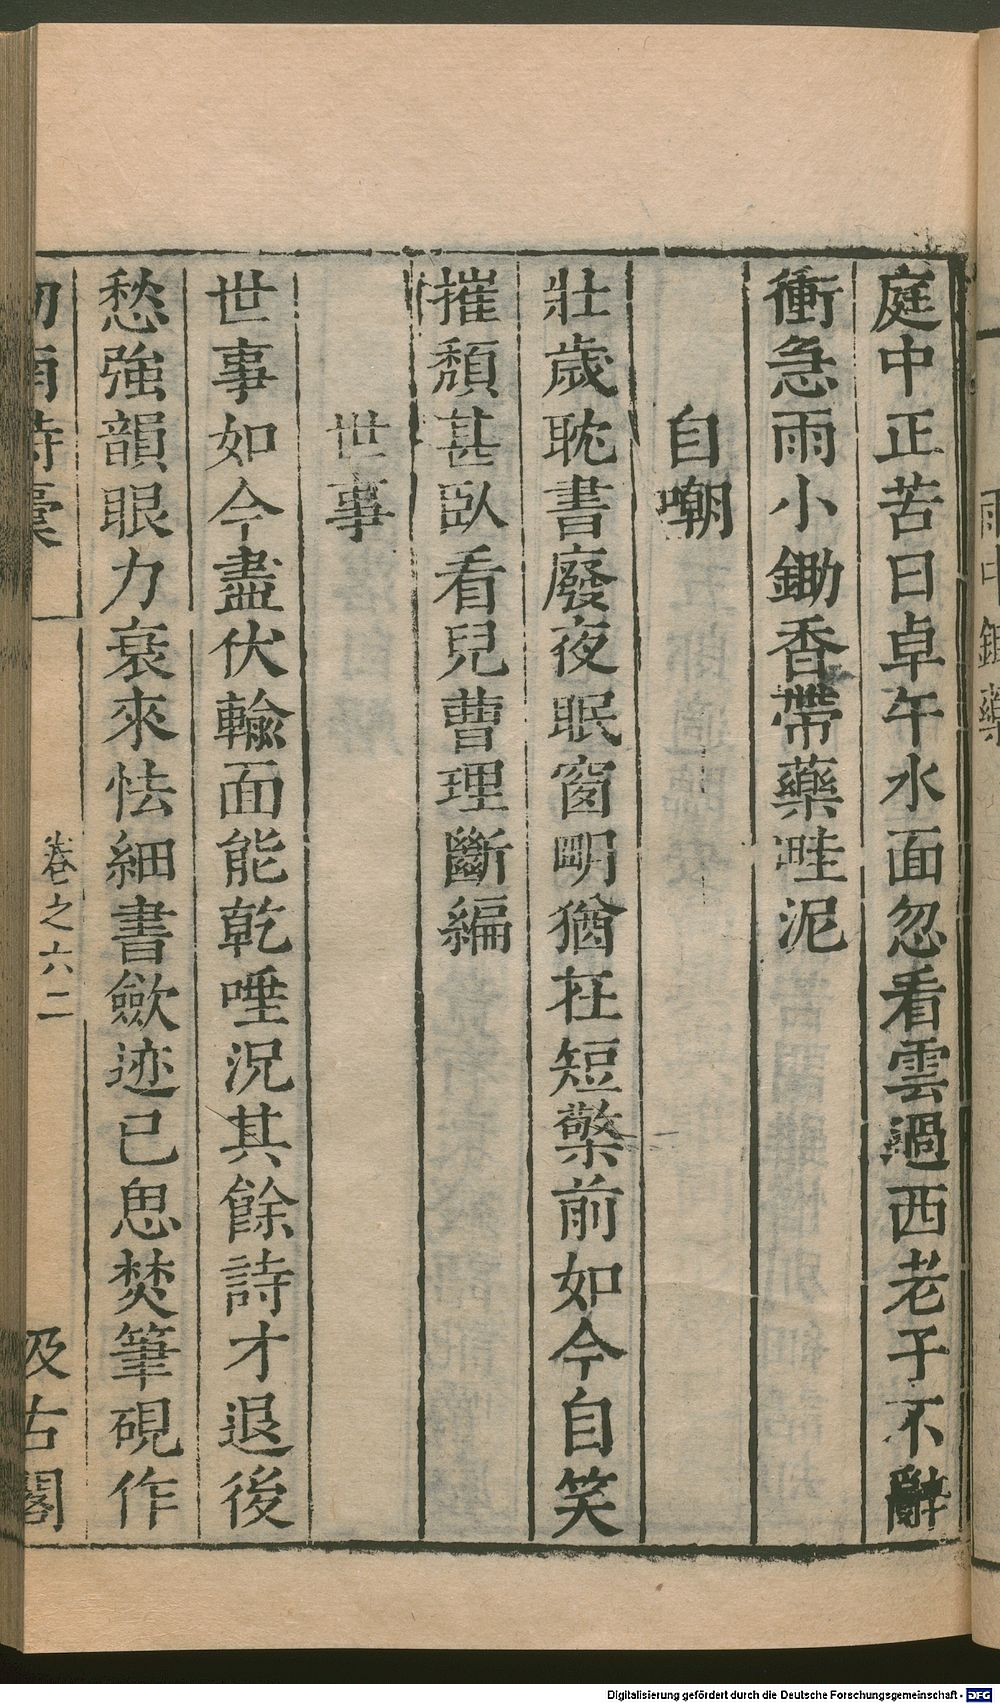 雨中鉏藥
庭中正苦日卓午水面忽看雲過西老子不辭
衝急雨小鋤香帶藥畦泥
自嘲
壯歲耽書廢夜眠窗明猶在短檠前如今自笑
摧頹甚臥看兒曹理斷編
世事
世事如今盡伏輸面能乾唾況其餘詩才退後
愁強韻眼力衰來怯細書斂迹已思焚筆硯作
劒南詩稾
卷之六二
汲古閣
Digitalisierung gefördert durch die Deutsche Forschungsgemeinschaft - DFG